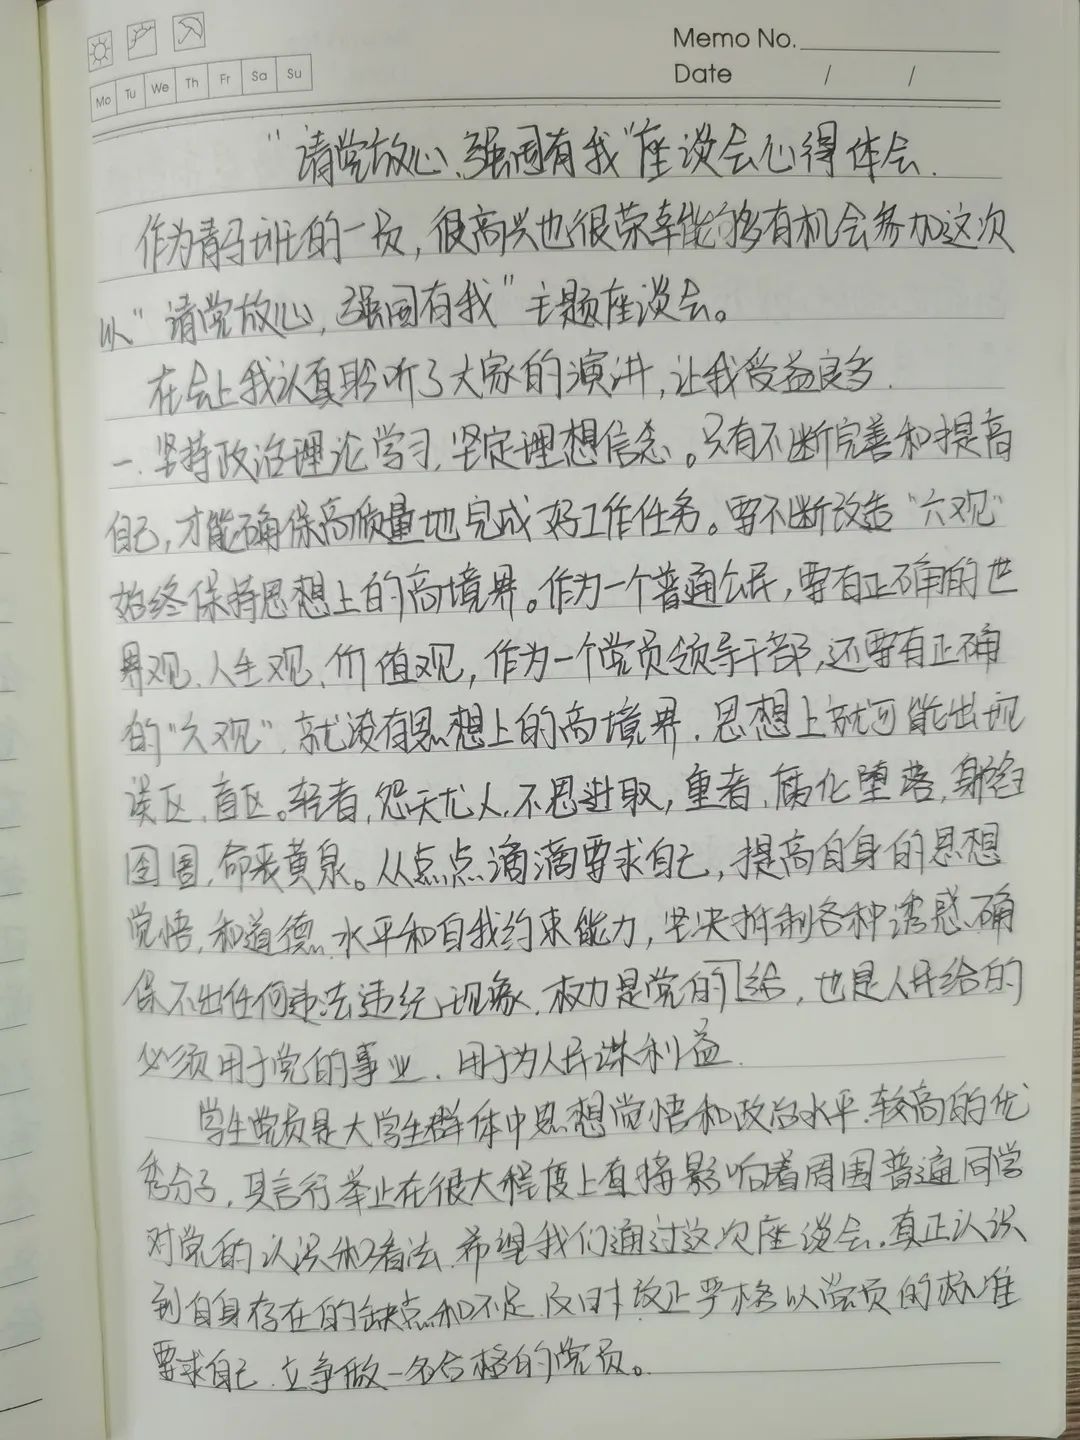 Memo No.
Date / /
Mo Tu We Th Fr Sa Su
"请党放心、强国有我"座谈会心得体会.
作为青马班的一员,很高兴也很荣幸能够有机会参加这次
以"请党放心,强国有我"主题座谈会。
在会上我认真聆听了大家的演讲,让我受益良多.
一.坚持政治理论学习,坚定理想信念。只有不断完善和提高
自己,才能确保高质量地完成好工作任务。要不断改造"六观"
始终保持思想上的高境界。作为一个普通公民,要有正确的世
界观、人生观、价值观,作为一个党员领导干部,还要有正确
的"六观",就没有思想上的高境界.思想上就可能出现
误区,盲区。轻者,怨天尤人,不思进取,重者,腐化堕落,身陷
囹圄,命丧黄泉。从点点滴滴要求自己,提高自身的思想
觉悟,和道德、水平和自我约束能力,坚决抵制各种诱惑,确
保不出任何违法违纪现象.权力是党的给,也是人民给的
必须用于党的事业.用于为人民谋利益.
学生党员是大学生群体中思想觉悟和政治水平.较高的优
秀分子,其言行举止在很大程度上直接影响着周围普通同学
对党的认识和看法.希望我们通过这次座谈会,真正认识
到自身存在的缺点和不足,及时改正严格以党员的标准
要求自己,立争做一名合格的党员。